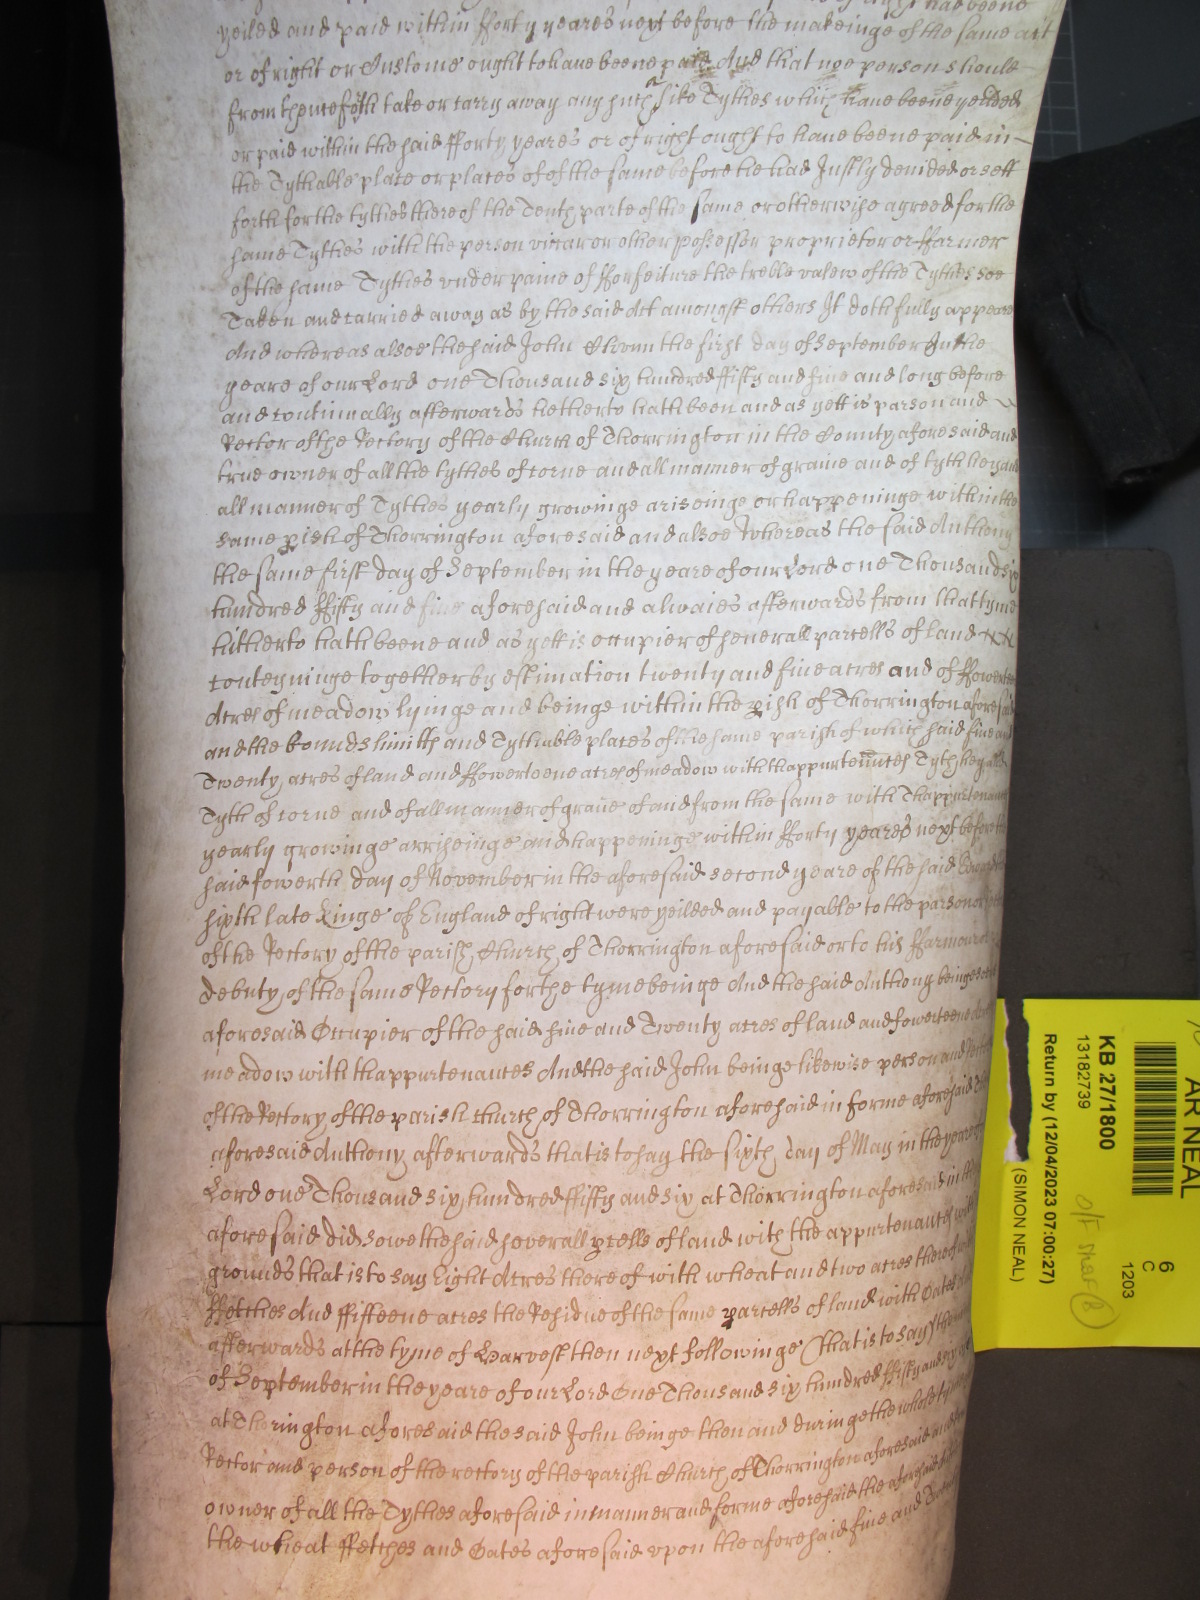 yeilded and paid within fforty yeares next before the makeinge of the same act
or of right or Custome ought to have beene paid And that noe person should
from thenceforth take or carry away any such like Tythes which have beene yeilded
or paid within the said fforty yeares or of right ought to have beene paid in
the Tythable place or places of of the same before he had Justly devided or sett
forth for the tythes thereof the Tenth parte of the same or otherwise agreed for the
same Tythes with the person viccar or other possessor proprietor or ffarmer
of the same Tythes under paine of fforfeiture the treble valew of the Tythes soe
Taken and carried away as by the said Act amongst others It doth fully appeare
And whereas alsoe the said John the first day of September In the
yeare of our Lord one Thousand six hundred ffifty and five and long before
and continually afterwards hetherto hath been and as yett is parson and
Rector of the Rectory of the Church of Thorrington in the County aforesaid and
true owner of all the tythes of corne and all manner of graine and of tyth hey and
all manner of Tythes yearly growinge ariseinge or happeninge within the
same pish of Thorrington aforesaid and alsoe Whereas the said Anthony
the same first day of September in the yeare of our Lord one Thousand six
hundred ffifty and five aforesaid and alwaies afterwards from that tyme
hitherto hath beene and as yett is occupier of severall parcells of land
conteyninge together by estimation twenty and five acres and of ffowerteene
Acres of meadow lyinge and beinge within the pish of Thorrington aforesaid
and the bounds limitts and Tythable places of the same parish of which said five and
Twenty acres of land and ffowerteene acres of meadow with thappurtennces Tyth hey and
Tyth of corne and of all manner of graine of and from the same with Thappurtenances
yearly growinge arriseinge and happeninge within fforty yeares next before the
said fowerth day of November in the aforesaid second yeare of the said Edward
sixth late Kinge of England of right were yeilded and payable to the parson
of the Rectory of the parish Church of Thorrington aforesaid or to his ffarmour
debuty of the same Rectory for the tyme beinge And the said Anthony beinge
aforesaid Occupier of the said five and Twenty acres of land and fowerteene acres
meadow with thappurtenances And the said John beinge likewise person and Rector
of the Rectory of the parish church of Thorrington aforesaid in forme aforesaid the
aforesaid Anthony afterwards that is to say the sixth day of May in the yeare of
Lord one Thousand six hundred ffifty and six at Thorrington aforesaid in the
aforesaid did sowe the said severall pcells of land with the appurtenances with
grounds that is to say Eight Acres thereof with wheat and two acres thereof with
ffetches And ffifteene acres the Residue of the same parcells of land with Oates
afterwards at the tyme of Harvest then next followinge (that is to say) the
of September in the yeare of our Lord One Thousand six hundred ffifty and six
at Thorington aforesaid the said John beinge then and duringe the whole tyme
Rector and person of the rectory of the parish Church of Thorrington aforesaid and
owner of all the Tythes aforesaid in manner and forme aforesaid the aforesaid
the wheat ffetches and Oates aforesaid upon the aforesaid five and
AR NEAL
6
C
1203
KB 27/1800
13182739
Return by (12/04/2023 07:00:27)
(SIMON NEAL)